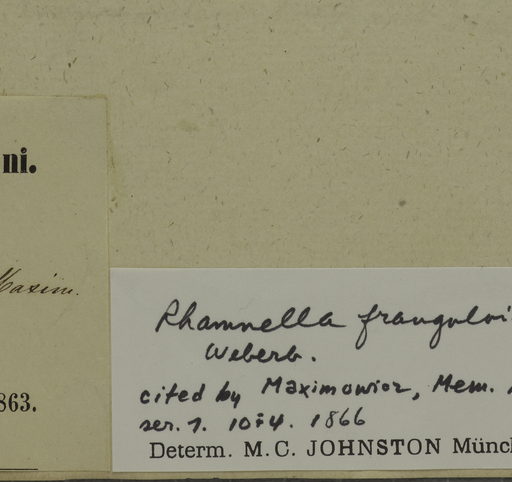 ni.
Maxim.
863.
Rhamnella franguloi
Weberb.
cited by Maximowicz, Mem.
ser. 7. 10:4. 1866
Determ. M.C. JOHNSTON Münc